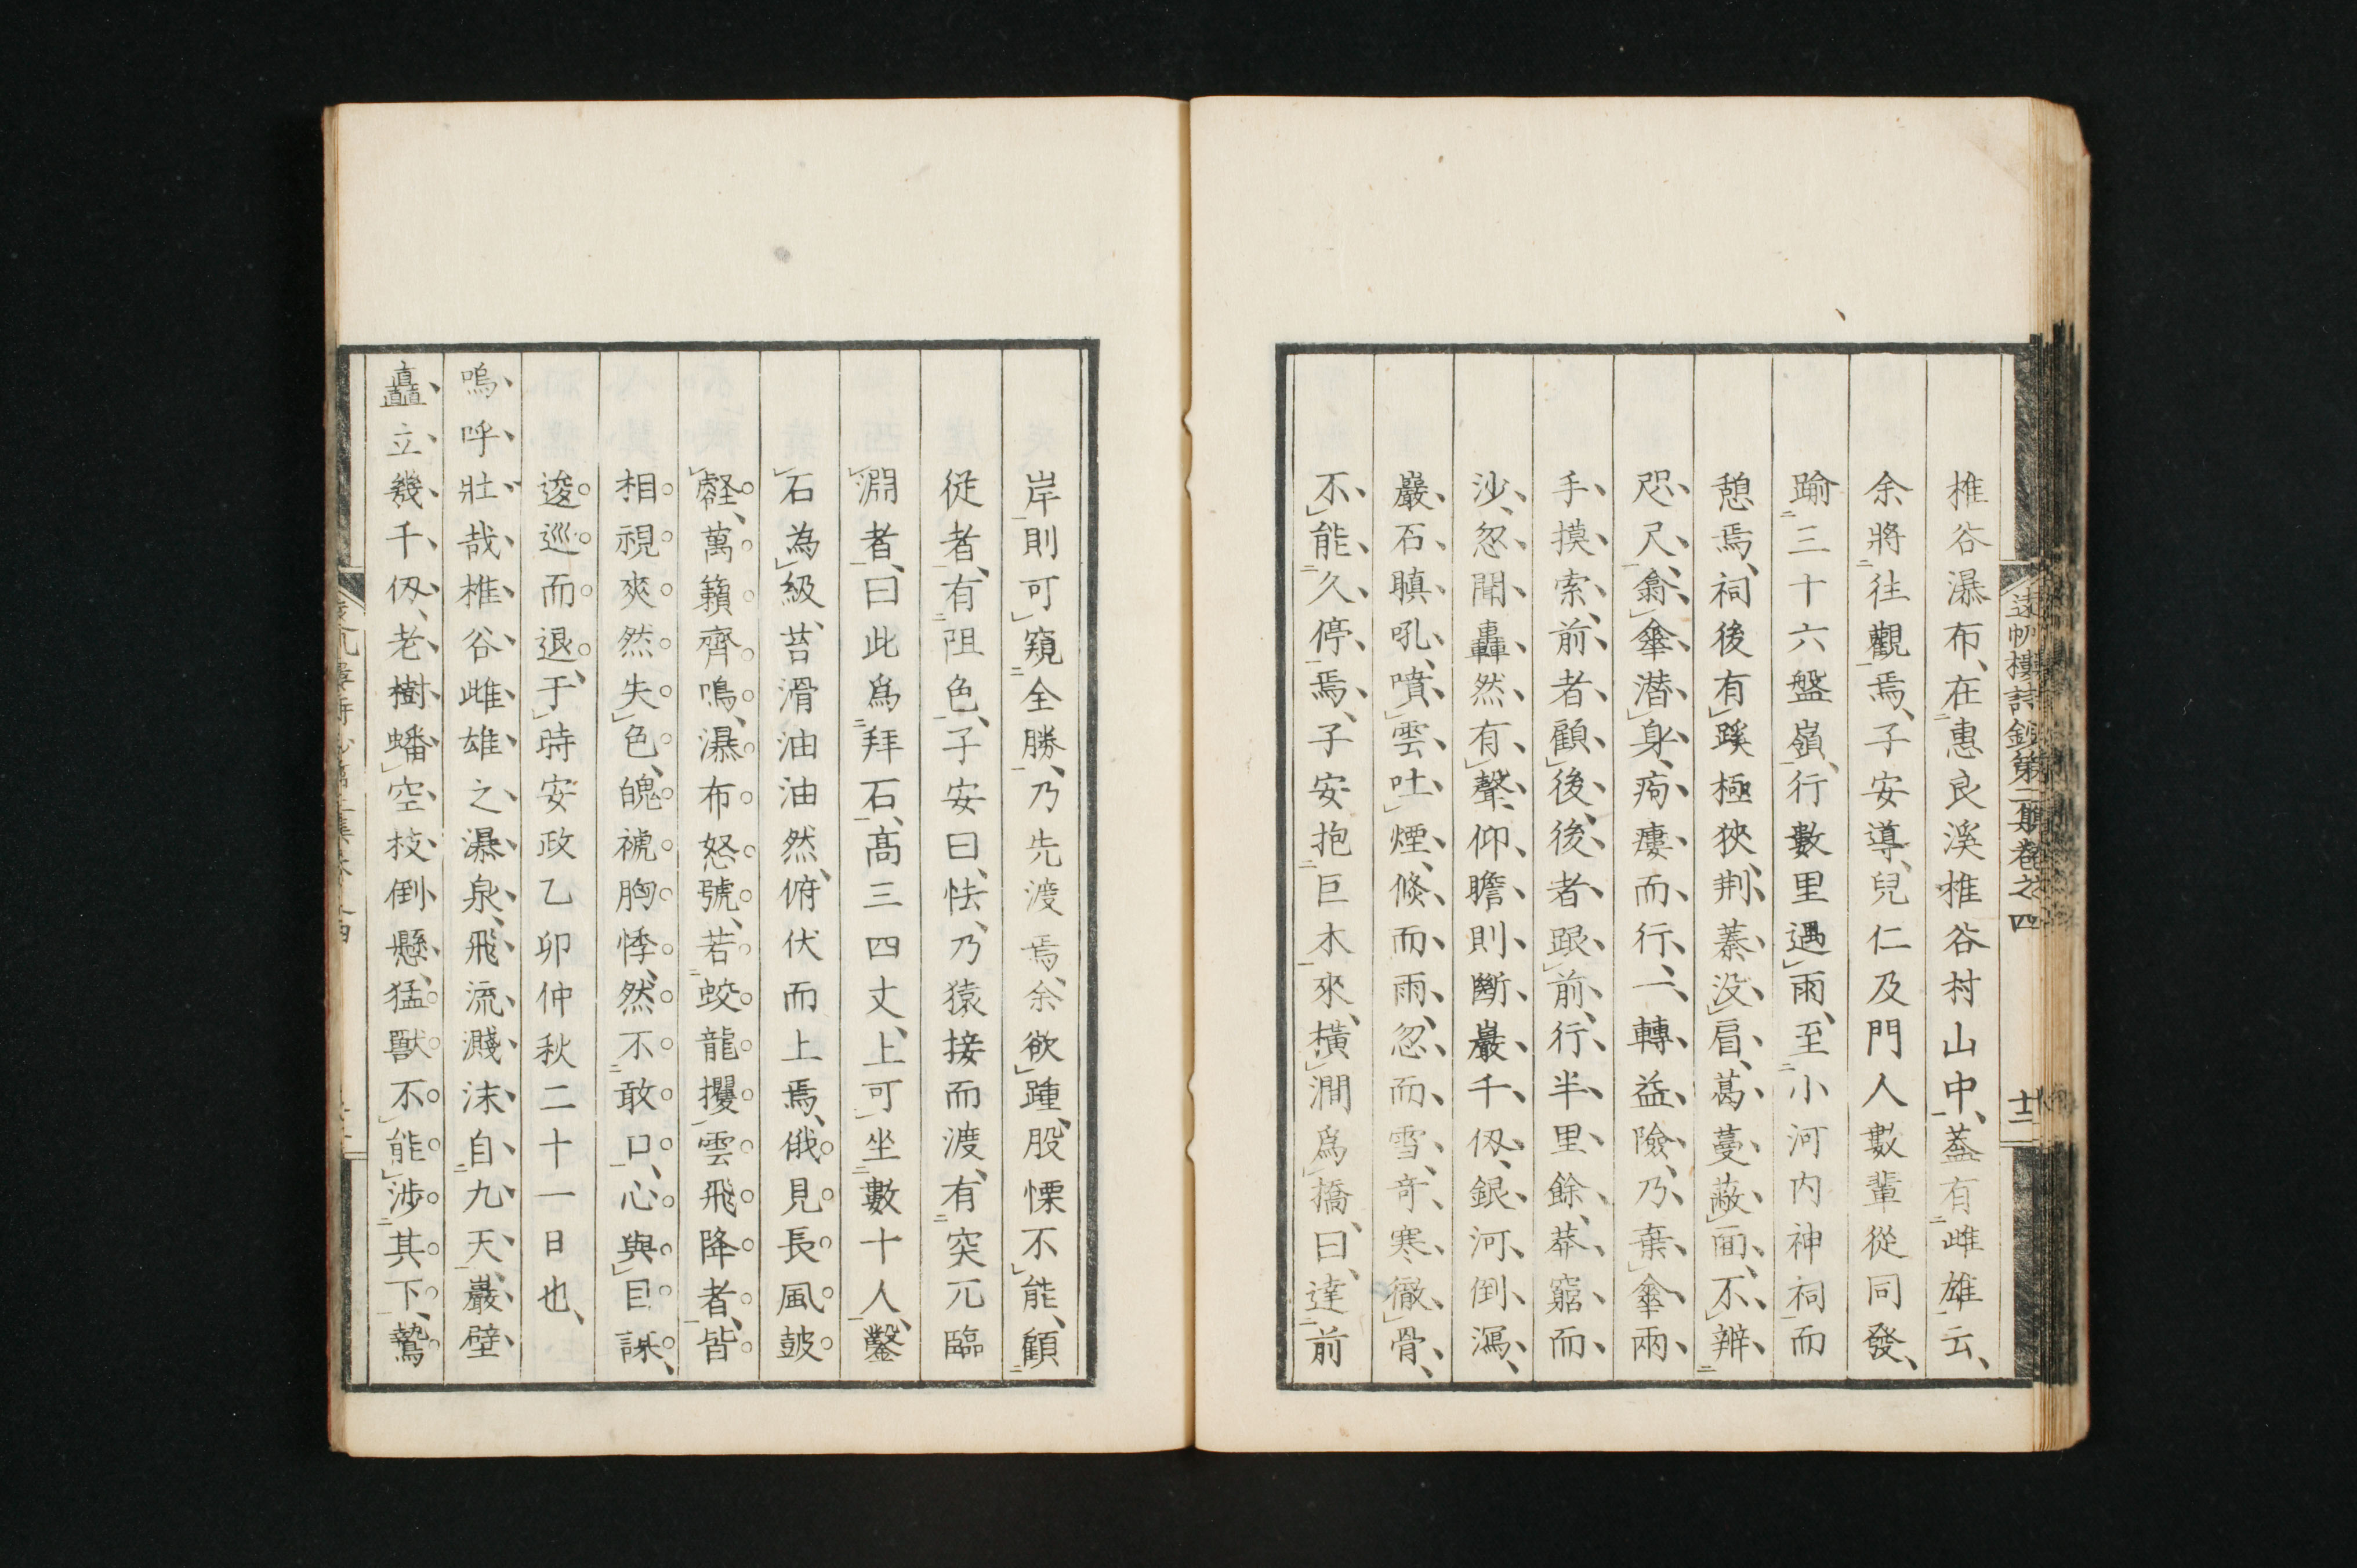 遠帆樓詩鈔第二集卷之四 十二
椎谷瀑布、在惠良溪椎谷村山中、蓋有雌雄云、
余將往觀焉、子安導、兒仁及門人數輩從同發、
踰三十六盤嶺、行數里遇雨、至小河内神祠而
憩焉、祠後有蹊極狹、荆蓁没肩、葛蔓蔽面、不辨
咫尺、翕傘潜身、痀瘻而行、一轉益險、乃棄傘兩
手摸索、前者顧後、後者跟前、行半里餘、莽窮而
沙、忽聞轟然有聲、仰瞻則斷巖千仭、銀河倒瀉、
巖石瞋吼、噴雲吐煙、倏而雨、忽而雪、竒寒徹骨、
不能久停焉、子安抱巨木來、横澗爲橋、曰、達前
岸則可窺全勝、乃先渡焉、余欲踵、股慄不能、顧
從者、有阻色、子安曰、怯、乃猿接而渡、有突兀臨
淵者、曰此爲拜石、髙三四丈、上可坐數十人、鑿
石為級、苔滑油油然、俯伏而上焉、俄見長風皷
壑、萬籟齊鳴、瀑布怒號、若蛟龍攫雲飛降者、皆
相視爽然失色、魄褫胸悸、然不敢口、心與目謀、
逡巡而退、于時安政乙卯仲秋二十一日也、
嗚呼壯哉椎谷雌雄之瀑泉、飛流濺沫自九天、巖壁
矗立幾千仭、老樹蟠空枝倒懸、猛獸不能渉其下、鷙